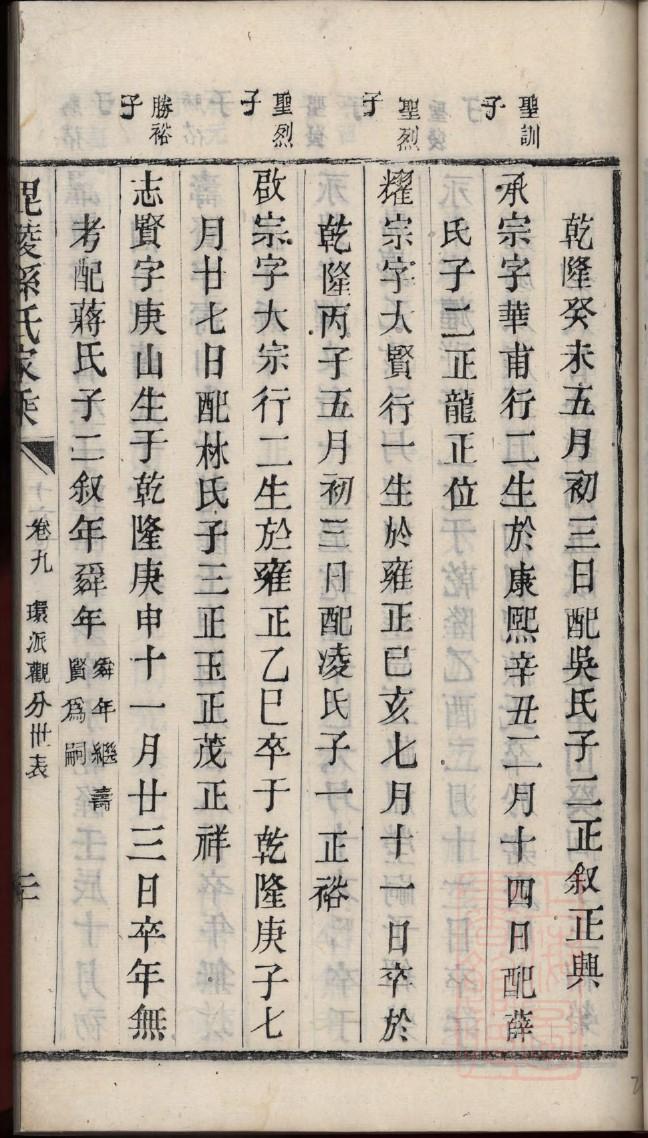 聖訓子
聖烈子
聖烈子
勝裕子
乾隆癸未五月初三日配吳氏子二正叙正興
承宗字華甫行二生於康熙辛丑二月十四日配薛
氏子二正龍正位
耀宗字大賢行一生於雍正己亥七月十一日卒於
乾隆丙子五月初三日配凌氏子一正裕
啟宗字大宗行二生於雍正乙巳卒于乾隆庚子七
月廿七日配林氏子三正玉正茂正祥
志賢字庚山生于乾隆庚申十一月廿三日卒年無
考配蔣氏子二叙年舜年
舜年繼壽
賢爲嗣
毘陵孫氏家乘
卷九 環派觀分世表